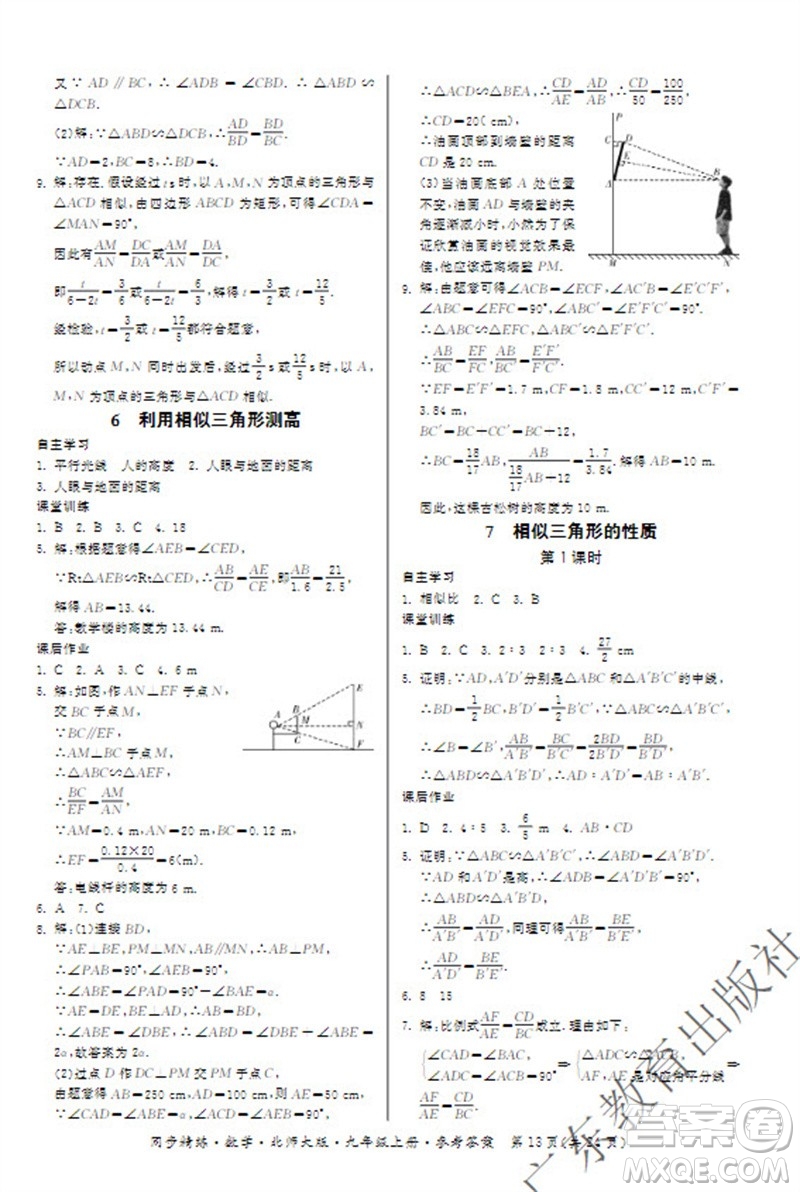 又∵AD∥BC,∴∠ADB=∠CBD.∴△ABD∽
△DCB.
(2)解:∵△ABD∽△DCB,∴AD/BD=BD/BC.
∵AD=2,BC=8,∴BD=4.
9. 解:存在.假设经过 t s时,以A,M,N为顶点的三角形与
△ACD 相似,由四边形 ABCD 为矩形,可得∠CDA=
∠MAN=90°,
因此有AM/AN=DC/DA或AM/AN=DA/DC,
即t/(6-2t)=3/6或t/(6-2t)=6/3,解得 t=3/2或t=12/5.
经检验,t=3/2或t=12/5都符合题意,
所以动点 M,N 同时出发后,经过3/2 s或12/5 s时,以 A,
M,N 为顶点的三角形与△ACD 相似.
6 利用相似三角形测高
自主学习
1. 平行光线 人的高度 2. 人眼与地面的距离
3. 人眼与地面的距离
课堂训练
1. B 2. B 3. C 4. 18
5. 解:根据题意得∠AEB=∠CED,
∵Rt△AEB∽Rt△CED,∴AB/CD=AE/CE,即AB/1.6=21/2.5,
解得 AB=13.44.
答:教学楼的高度为 13.44 m.
课后作业
1. C 2. A 3. C 4. 6 m
5. 解:如图,作 AN⊥EF 于点 N,
交 BC 于点 M,
∵BC∥EF,
∴AM⊥BC 于点 M,
∴△ABC∽△AEF,
∴BC/EF=AM/AN,
∵AM=0.4 m,AN=20 m,BC=0.12 m,
∴EF=(0.12×20)/0.4=6(m).
答:电线杆的高度为 6 m.
A B M C E N F
6. A 7. C
8. 解:(1)连接 BD,
∵AE⊥BE,PM⊥MN,AB⊥PM,
∴∠PAB=90°,∠AEB=90°,
∴∠ABE=∠PAE=α.
∵AE=DE,BE⊥AD,
∴∠ABE=∠DBE,∴∠ABD=∠ABE+∠DBE=
2α,故答案为2α.
(2)过点 D 作 DC⊥PM 交 PM 于点C,
由题意得 AB=250 cm,AD=100 cm,则 AE=50 cm,
∵∠CAD=∠ABE=α,∠ACD=∠AEB=90°,
∴△ACD∽△BEA,∴CD/AE=AD/AB,∴CD/50=100/250,
∴CD=20( cm),
∴油画顶部到墙壁的距离
CD 是 20 cm.
(3)当油画底部 A 处位置
不变,油画 AD 与墙壁的夹
角逐渐减小时,小然为了保
证欣赏油画的视觉效果最
佳,他应该远离墙壁 PM.
P C D E A B M N
9. 解:由题意可得∠ACB=∠ECF,∠AC′B=∠E′C′F′,
∠ABC=∠EFC=90°,∠ABC′=∠E′F′C′=90°.
∴△ABC∽△EFC,△ABC′∽△E′F′C′,
∴AB/BC=EF/FC,AB/BC′=E′F′/F′C′.
∵EF=E′F′=1.7 m,CF=1.8 m,CC′=12 m,C′F′=
3.84 m,
BC′=BC+CC′=BC+12,
∴BC=18/17AB,AB/(18/17AB+12)=1.7/3.84.解得 AB=10.
因此,这棵古松树的高度为 10 m.
7 相似三角形的性质
第 1 课时
自主学习
1. 相似比 2. C 3. B
课堂训练
1. B 2. C 3. 2∶3 2∶3 4. 27/2 cm
5. 证明:∵AD,A′D′分别是△ABC 和△A′B′C′的中线,
∴BD=1/2BC,B′D′=1/2B′C′,∵△ABC∽△A′B′C′,
∴∠B=∠B′,AB/A′B′=BC/B′C′=2BD/2B′D′=BD/B′D′,
∴△ABD∽△A′B′D′,∴AD/A′D′=AB/A′B′.
课后作业
1. D 2. 4∶5 3. 6/5 m 4. AB·CD
5. 证明:∵△ABC∽△A′B′C′,∴∠ABD=∠A′B′D′.
∵AD 和A′D′是高,∴∠ADB=∠A′D′B′=90°,
∴△ABD∽△A′B′D,
∴AB/A′B′=AD/A′D′,同理可得AB/A′B′=BE/B′E′,
∴AD/A′D′=BE/B′E′.
6. 8 15
7. 解:比例式AF/AE=CD/BC成立.理由如下:
{∠CAD=∠BAC, ⇒ {△ACD∽△ABC, ⇒
∠ADC=∠ACB=90° AF,AE 是对应角平分线
同步精练·数学·北师大版·九年级上册·参考答案 第 13 页(共 24 页)
广东教育出版社